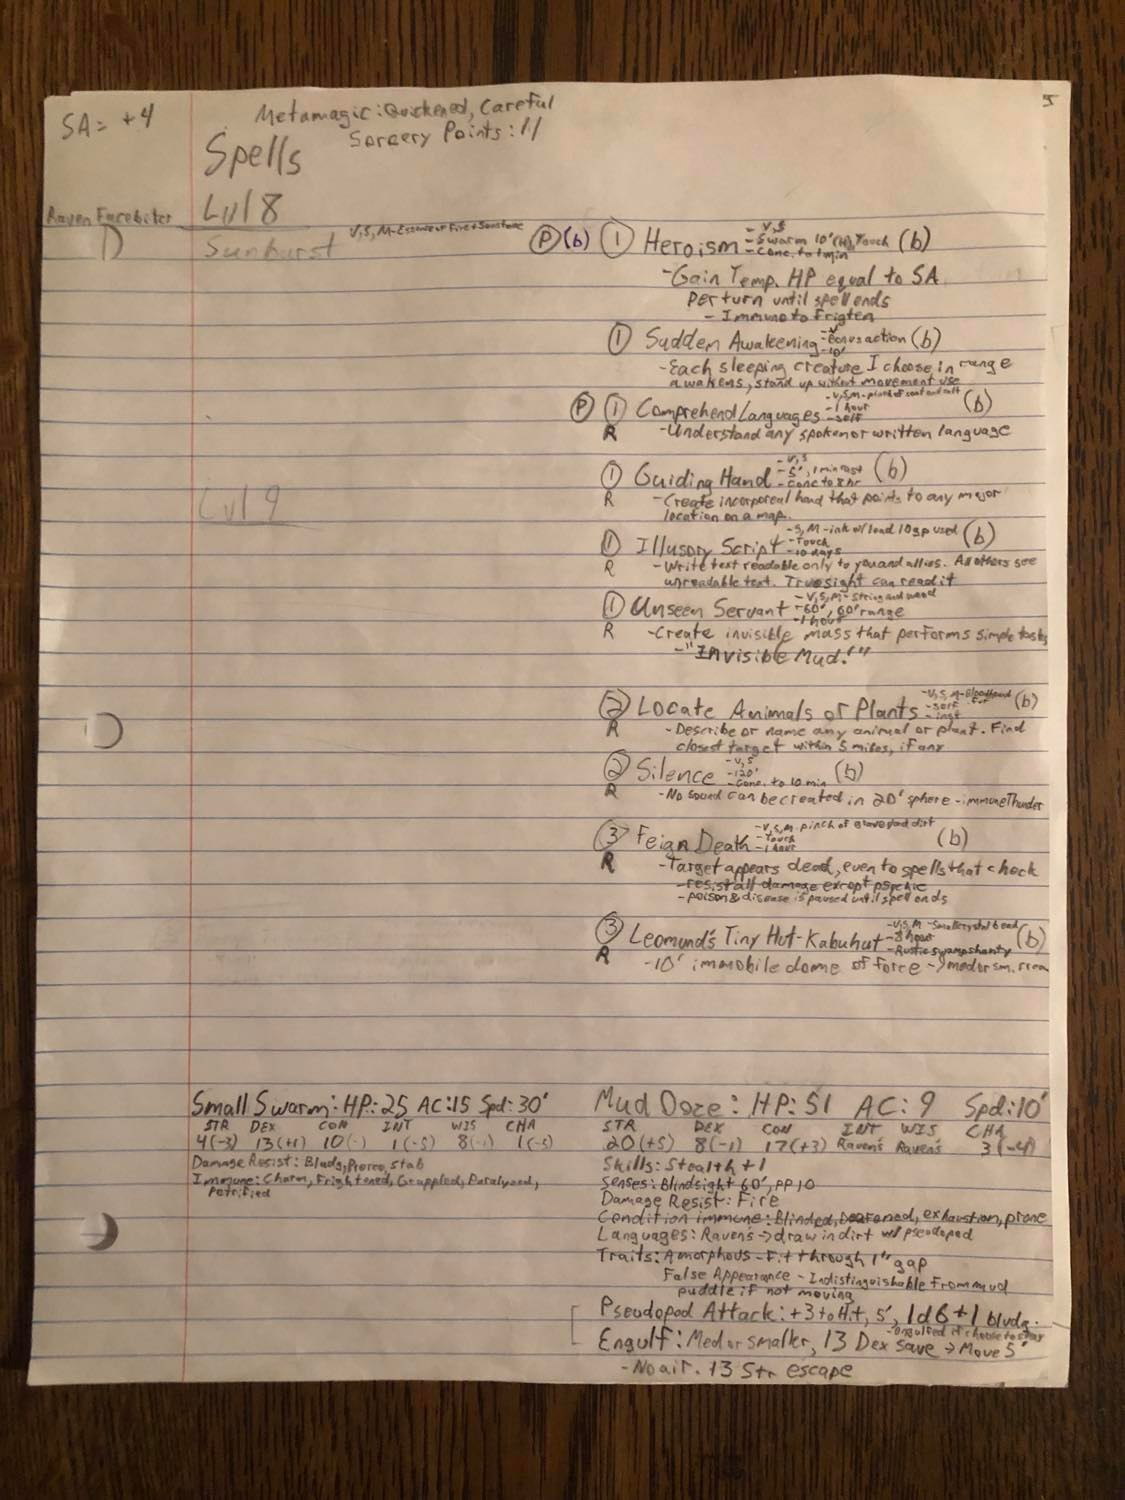 5
SA= +4
Metamagic: Quickened, Careful
Sorcery Points: 11
Spells
Raven Facebiter
Lvl 8
Sunburst V, S, M-Essence of Fire + Sunstone
Lvl 9
P (b) 1 Heroism (b)
- V,S
- Swarm 10' (H), Touch
- Conc. to 1 min
- Gain Temp. HP equal to SA
per turn until spell ends
- Immune to frigten
1 Sudden Awakening (b)
- V
- Bonus action
- 10'
- Each sleeping creature I choose in range
awakens, stand up without movement use
P 1 Comprehend Languages (b)
- V,S,M- pinch of soot and salt
- 1 hour
- self
R - Understand any spoken or written language
1 Guiding Hand (b)
- V,S
- 5', 1 min cast
- Conc to 8 hr
R - Create incorporeal hand that points to any major
location on a map.
1 Illusory Script (b)
- S, M - ink w/ lead 10gp used
- Touch
- 10 days
R - Write text readable only to you and allies. All others see
unreadable text. Truesight can read it
1 Unseen Servant
- V,S,M- string and wood
- 60', 60' range
- 1 hour
R - Create invisible mass that performs simple tasks
- "Invisible Mud!"
2 Locate Animals or Plants (b)
- V,S,M- Bloodhound fur
- self
- inst
R - Describe or name any animal or plant. Find
closest target within 5 miles, if any
2 Silence (b)
- V,S
- 120'
- Conc. to 10 min
R - No sound can be created in 20' sphere - immune Thunder
3 Feign Death (b)
- V,S,M- pinch of graveyard dirt
- Touch
- 1 hour
R - Target appears dead, even to spells that check
- resist all damage except psychic
- poison & disease is paused until spell ends
3 Leomund's Tiny Hut - Kabuhut (b)
- V,S,M - Small crystal bead
- 8 hour
- Rustic swamp shanty
R - 10' immobile dome of force -> med or sm.
Small Swarm: HP: 25 AC: 15 Spd: 30'
STR DEX CON INT WIS CHA
4(-3) 13(+1) 10(-) 1(-5) 8(-1) 1(-5)
Damage Resist: Bludg, Pierce, Stab
Immune: Charm, Frightened, Grappled, Paralyzed,
Petrified
Mud Ooze: HP: 51 AC: 9 Spd: 10'
STR DEX CON INT WIS CHA
20(+5) 8(-1) 17(+3) Raven's Raven's 3(-4)
Skills: Stealth +1
Senses: Blindsight 60', PP 10
Damage Resist: Fire
Condition immune: Blinded, Deafened, exhaustion, prone
Languages: Raven's -> draw in dirt w/ pseudopod
Traits: Amorphous - Fit through 1" gap
False Appearance - Indistinguishable from mud
puddle if not moving
Pseudopod Attack: +3 to Hit, 5', 1d6+1 bludg.
- Engulfed if choose to stay
Engulf: Med or smaller, 13 Dex save -> Move 5'
- No air. 13 Str escape